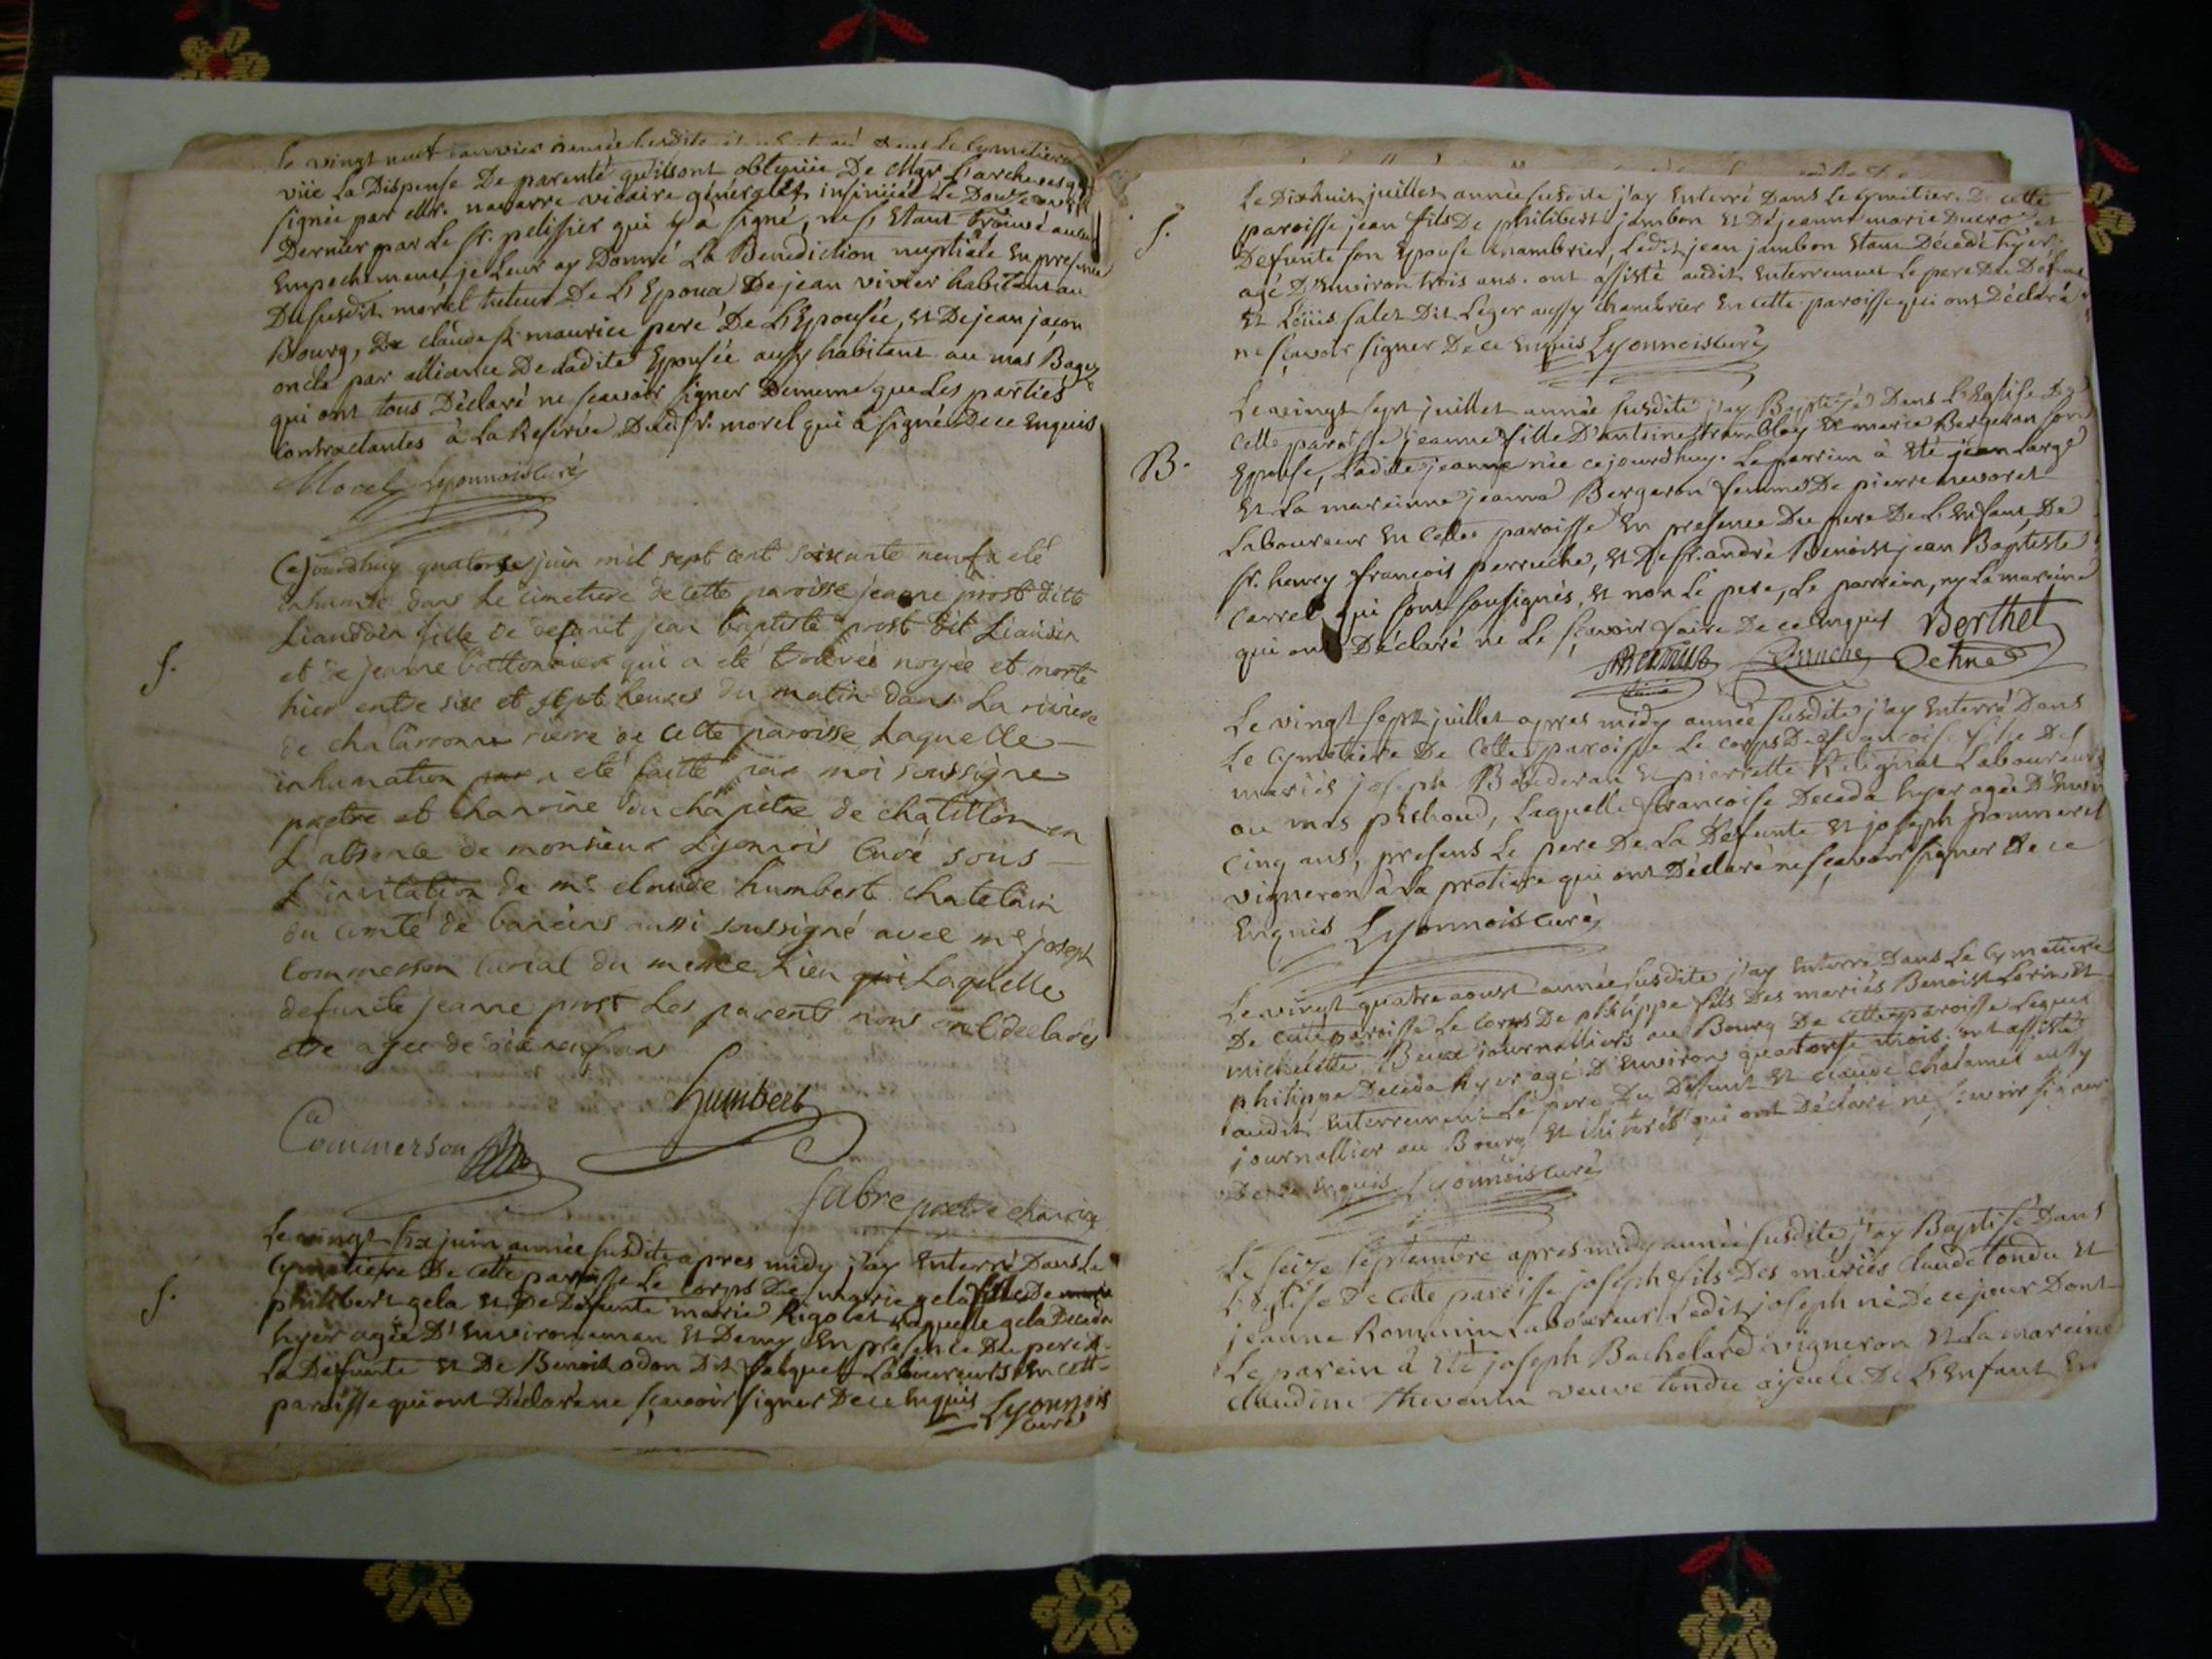 Le vingt neuf janvier année susdite Dans Le Cymetiere
vüe La Dispense De parenté qu'ils ont obtenüe De Mgr L'archevesque
signée par Mr. navarre vicaire général et insinüée Le Douze avril
Dernier par Le Sr. pelissier qui y a signé, ne s'Etant trouvé aucun
Empechement je Leur ay Donné La Benediction nuptiale En presence
Du susdit morel tuteur De L'Epoux De jean vivier habitant au
Bourg, De claude st maurice pere De L'Epousée, et De jean jacon
oncle par alliance De Ladite Epousée aussy habitant au mas Bagey
qui ont tous Déclaré ne scavoir signer Dememe que Les parties
contractantes à La Reserve Dudt Sr. morel qui a signé De ce Enquis
Morel Lyonnois curé
Cejourdhuy quatorse juin mil sept cent soixante neuf a eté
inhumée dans Le cimetiere de cette paroisse jeanne prost ditte
Liandon fille de defunt jean baptiste prost dit Liandon
S. et de jeanne qui a eté trouvée noyée et morte
hier entre six et sept heures du matin dans La riviere
de chalaronne rierre de cette paroisse Laquelle
inhumation a eté faitte par moi soussigné
pretre et chanoine du chapitre de chatillon en
L'absence de monsieur Lyonnois Curé sous
L'invitation de me claude humbert chatelain
du comté de baneins aussi soussigné avec me joseph
Commerson curial du meme Lieu Laquelle
defunte jeanne prost Les parents nous ont declarés
etre agée de dix neuf ans
Humbert
Commerson
fabre pretre chanoine
Le vingt six juin année susdite apres midy j'ay Enterré Dans Le
Cymetiere De cette paroisse Le corps De marie gela fille De
S. philibert gela et De Defunte marie Rigolet Laquelle gela Deceda
hyer agée D'Environ un an et Demy En presence Du pere De
La Defunte et De Benoit odon Dit Laboureurs En cette
paroisse qui ont Déclaré ne scavoir signer De ce Enquis Lyonnois
curé
Le Dix huit juillet année susdite j'ay Enterré Dans Le cymetiere De cette
S. paroisse jean fils De philibert jambon et De jeanne marie Ducroz et
Defunte son Epouse chambrier, Ledit jean jambon Etant Décédé hyer
agé D'Environ trois ans. ont assisté audit Enterrement Le pere Du Defunt
et Loüis salet Dit Leger aussy chambrier En cette paroisse qui ont Déclaré
ne scavoir signer De ce Enquis Lyonnois curé
Le vingt sept juillet année susdite j'ay Baptisé Dans L'Eglise De
cette paroisse jeanne fille D'antoine tramblay et marie Bergeron son
B. Epouse, Ladite jeanne née cejourdhuy. Le parrein à Eté jean Large
et La mareinne jeanne Bergeron femme De pierre mevoret
Laboureur En cette paroisse En presence Du pere De L'Enfant, De
Sr. henry françois perruche, et De Sr. andré Benoist jean Baptiste
Carrel qui sont sousignés, et non Le pere, Le parrein, ny La mareine
qui ont Déclaré ne Le scavoir faire De ce Enquis Berthet
Perruche
Le vingt sept juillet apres midy année susdite j'ay Enterré Dans
Le Cymetiere De cette paroisse Le corps De françoise fille Des
mariés joseph Bouderan et pierrette Religieux Laboureurs
au mas pichoud, Laquelle françoise Deceda hyer agée D'Environ
cinq ans, presens Le pere De La Defunte et joseph pommeret
vigneron à La protiere qui ont Déclaré ne scavoir signer De ce
Enquis Lyonnois curé
Le vingt quatre aoust année susdite j'ay Enterré Dans Le Cymetiere
De cette paroisse Le corps De philippe fils Des mariés Benoist Lorin et
michelette Beux journalliers au Bourg De cette paroisse Lequel
philippe Deceda hyer agé D'Environ quatorse mois. ont assisté
audit Enterrement Le pere Du Defunt et claude chalamel aussy
journallier au Bourg et qui ont Déclaré ne scavoir signer
De ce Enquis Lyonnois curé
Le seize septembre apres midy année susdite j'ay Baptisé Dans
L'Eglise De cette paroisse joseph fils Des mariés claude tondu et
jeanne Romanin Laboureur Ledit joseph né De ce jour Dont
Le parein à Eté joseph Bachelard vigneron et La mareine
claudine thevenin veuve tondu ayeule De L'Enfant En